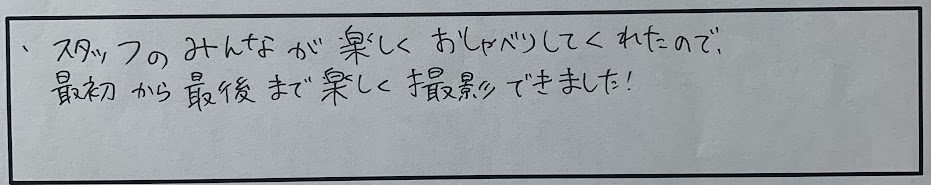 、スタッフのみんなが楽しくおしゃべりしてくれたので、
最初から最後まで楽しく撮影できました!